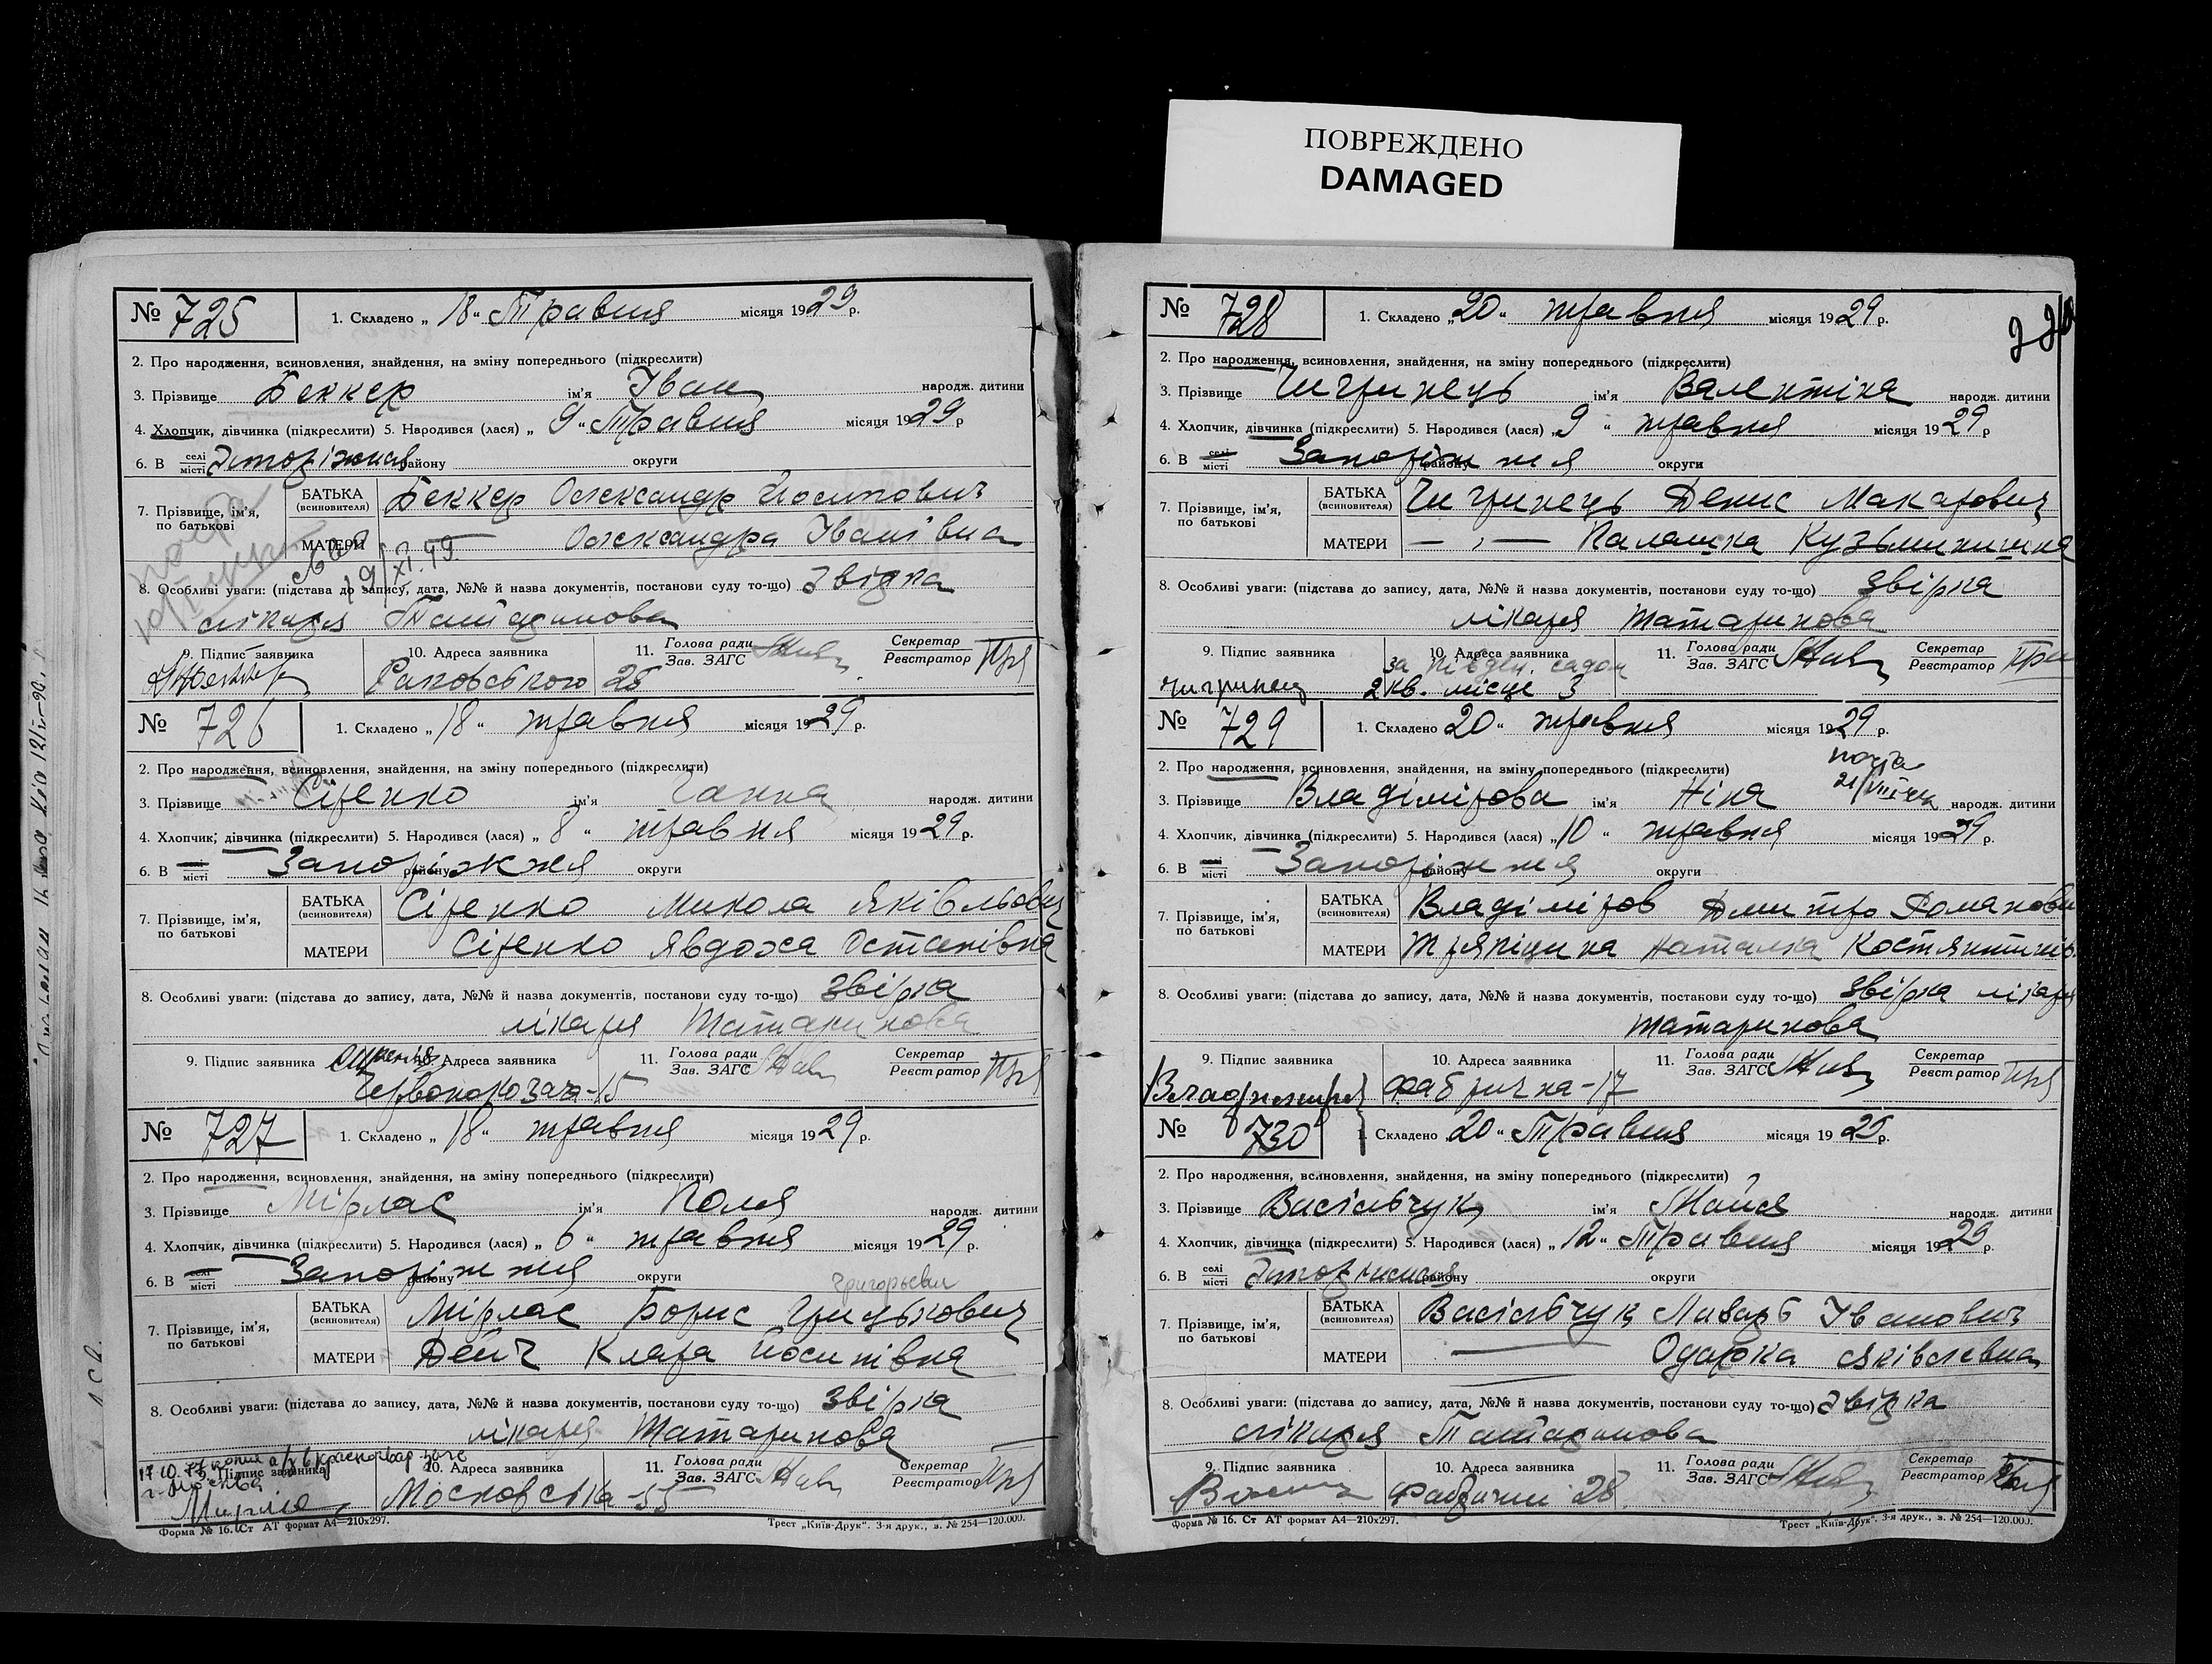 ПОВРЕЖДЕНО
DAMAGED
№ 725 1. Складено „ 18 “ Травня місяця 1929 р.
2. Про народження, всиновлення, знайдення, на зміну попереднього (підкреслити)
3. Прізвище Беккер ім'я Іван народж. дитини
4. Хлопчик, дівчинка (підкреслити) 5. Народився (лася) „ 9 “ Травня місяця 1929 р
6. В селі місті Запоріжжя району округи
7. Прізвище, ім'я, по батькові БАТЬКА (всиновителя) Беккер Олександр Йосипович
МАТЕРИ Олександра Іванівна
19/XI. 49
8. Особливі уваги: (підстава до запису, дата, №№ й назва документів, постанови суду то-що) Звірка
лікаря Татаринова
9. Підпис заявника 10. Адреса заявника 11. Голова ради Зав. ЗАГС Секретар Реєстратор
Раковського 25
№ 726 1. Складено „ 18 “ травня місяця 1929 р.
2. Про народження, всиновлення, знайдення, на зміну попереднього (підкреслити)
3. Прізвище Сіренко ім'я Ганна народж. дитини
4. Хлопчик, дівчинка (підкреслити) 5. Народився (лася) „ 8 “ травня місяця 1929 р.
6. В селі місті Запоріжжя району округи
7. Прізвище, ім'я, по батькові БАТЬКА (всиновителя) Сіренко Микола Яківльович
МАТЕРИ Сіренко Явдоха Остапівна
8. Особливі уваги: (підстава до запису, дата, №№ й назва документів, постанови суду то-що) Звірка
лікаря Татаринова
9. Підпис заявника 10. Адреса заявника 11. Голова ради Зав. ЗАГС Секретар Реєстратор
№ 727 1. Складено „ 18 “ травня місяця 1929 р.
2. Про народження, всиновлення, знайдення, на зміну попереднього (підкреслити)
3. Прізвище Мірлас ім'я Поля народж. дитини
4. Хлопчик, дівчинка (підкреслити) 5. Народився (лася) „ 6 “ травня місяця 1929 р.
6. В селі місті Запоріжжя району округи
Григорьевич
7. Прізвище, ім'я, по батькові БАТЬКА (всиновителя) Мірлас Борис Грицькович
МАТЕРИ Дейч Клара Йосипівна
8. Особливі уваги: (підстава до запису, дата, №№ й назва документів, постанови суду то-що) Звірка
лікаря Татаринова
9. Підпис заявника 10. Адреса заявника 11. Голова ради Зав. ЗАГС Секретар Реєстратор
Московська 55
Форма № 16. Ст АТ формат А4—210x297. Трест „Київ-Друк“. 3-я друк., з. № 254—120.000.
№ 728 1. Складено „ 20 “ травня місяця 1929 р.
2. Про народження, всиновлення, знайдення, на зміну попереднього (підкреслити)
3. Прізвище Чигринець ім'я Валентіна народж. дитини
4. Хлопчик, дівчинка (підкреслити) 5. Народився (лася) „ 9 “ травня місяця 1929 р
6. В селі місті Запоріжжя району округи
7. Прізвище, ім'я, по батькові БАТЬКА (всиновителя) Чигринець Денис Макарович
МАТЕРИ — „ — Палашка Кузьминишна
8. Особливі уваги: (підстава до запису, дата, №№ й назва документів, постанови суду то-що) Звірка
лікаря Татаринова
9. Підпис заявника 10. Адреса заявника 11. Голова ради Зав. ЗАГС Секретар Реєстратор
за Півден. садом
Чигринец 2 кв. місце 3
№ 729 1. Складено 20 “ травня місяця 1929 р.
2. Про народження, всиновлення, знайдення, на зміну попереднього (підкреслити)
3. Прізвище Владімірова ім'я Ніна народж. дитини
4. Хлопчик, дівчинка (підкреслити) 5. Народився (лася) „ 10 “ травня місяця 1929 р.
6. В селі місті Запоріжжя району округи
7. Прізвище, ім'я, по батькові БАТЬКА (всиновителя) Владіміров Дмитро Романович
МАТЕРИ Тряпіцина Наталка Костянтинів.
8. Особливі уваги: (підстава до запису, дата, №№ й назва документів, постанови суду то-що) Звірка лікаря
Татаринова
9. Підпис заявника 10. Адреса заявника 11. Голова ради Зав. ЗАГС Секретар Реєстратор
Фабрична-17
№ 730 1. Складено „ 20 “ Травня місяця 1929 р.
2. Про народження, всиновлення, знайдення, на зміну попереднього (підкреслити)
3. Прізвище Васільчук ім'я Майя народж. дитини
4. Хлопчик, дівчинка (підкреслити) 5. Народився (лася) „ 12 “ Травня місяця 1929 р.
6. В селі місті Запоріжжя району округи
7. Прізвище, ім'я, по батькові БАТЬКА (всиновителя) Васільчук Лазарь Іванович
МАТЕРИ Одарка Яківлевна
8. Особливі уваги: (підстава до запису, дата, №№ й назва документів, постанови суду то-що) Звірка
лікаря Татаринова
9. Підпис заявника 10. Адреса заявника 11. Голова ради Зав. ЗАГС Секретар Реєстратор
28
Форма № 16. Ст АТ формат А4—210x297. Трест „Київ-Друк“. 3-я друк., з. № 254—120.000.